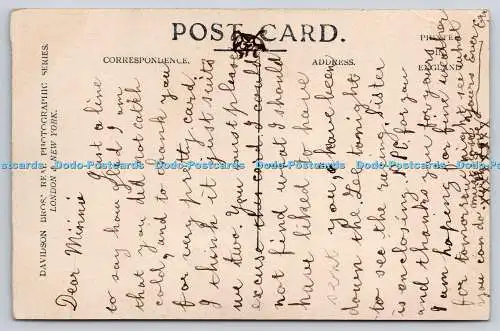 POST CARD.
CORRESPONDENCE.
ADDRESS.
PRINTED
IN
ENGLAND
DAVIDSON BROS.' REAL PHOTOGRAPHIC SERIES.
LONDON & NEW YORK.
Dear Minnie Just a line
to say how glad I am
that you did not catch
cold, and to thank you
for very pretty card
I think it just suits
we two. You must please
excuse this card I could
not find what I should
have liked to have
sent you, & have been
down the Lee tonight
to see the rowing, sister
is enclosing P.C for you
and thanks you for yours
I am hoping for fine weather
for tomorrow, see what
you can do
yours Ever
Dodo-Postcards Dodo-Postcards Dodo-Postcards Dodo-Postcards